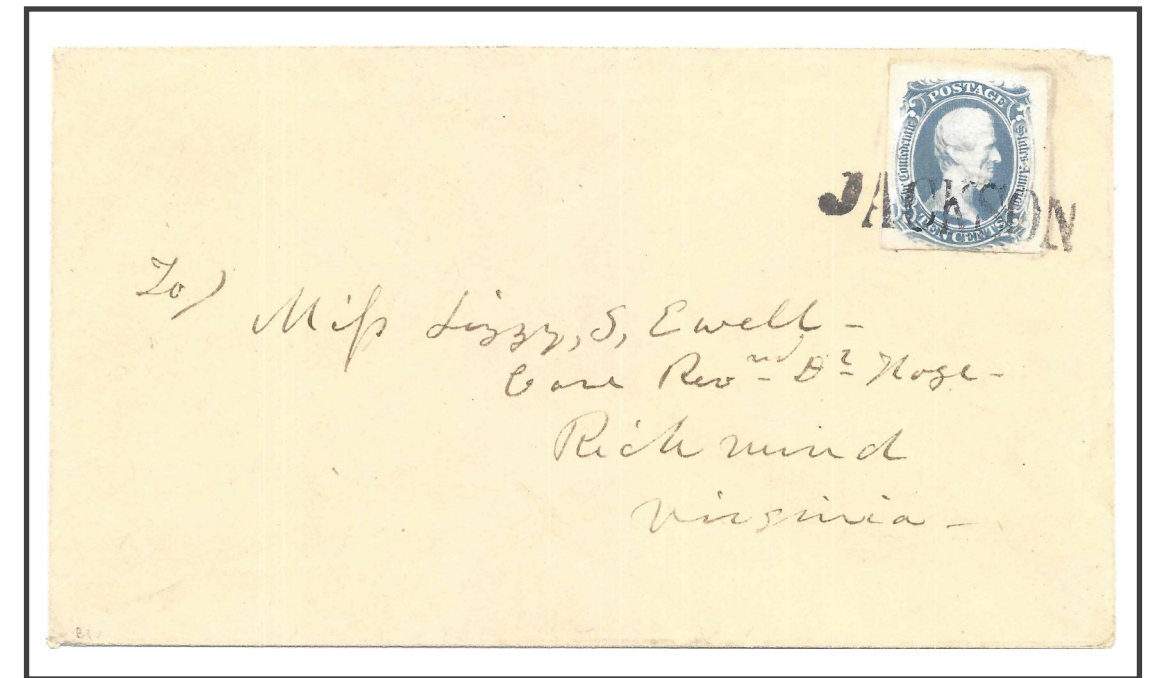 POSTAGE
The Confederate States of America
TEN CENTS
JACKSON
To)
Miss Lizzy, S, Ewell -
Care Revnd Dr Hoge -
Richmind
Virginia -